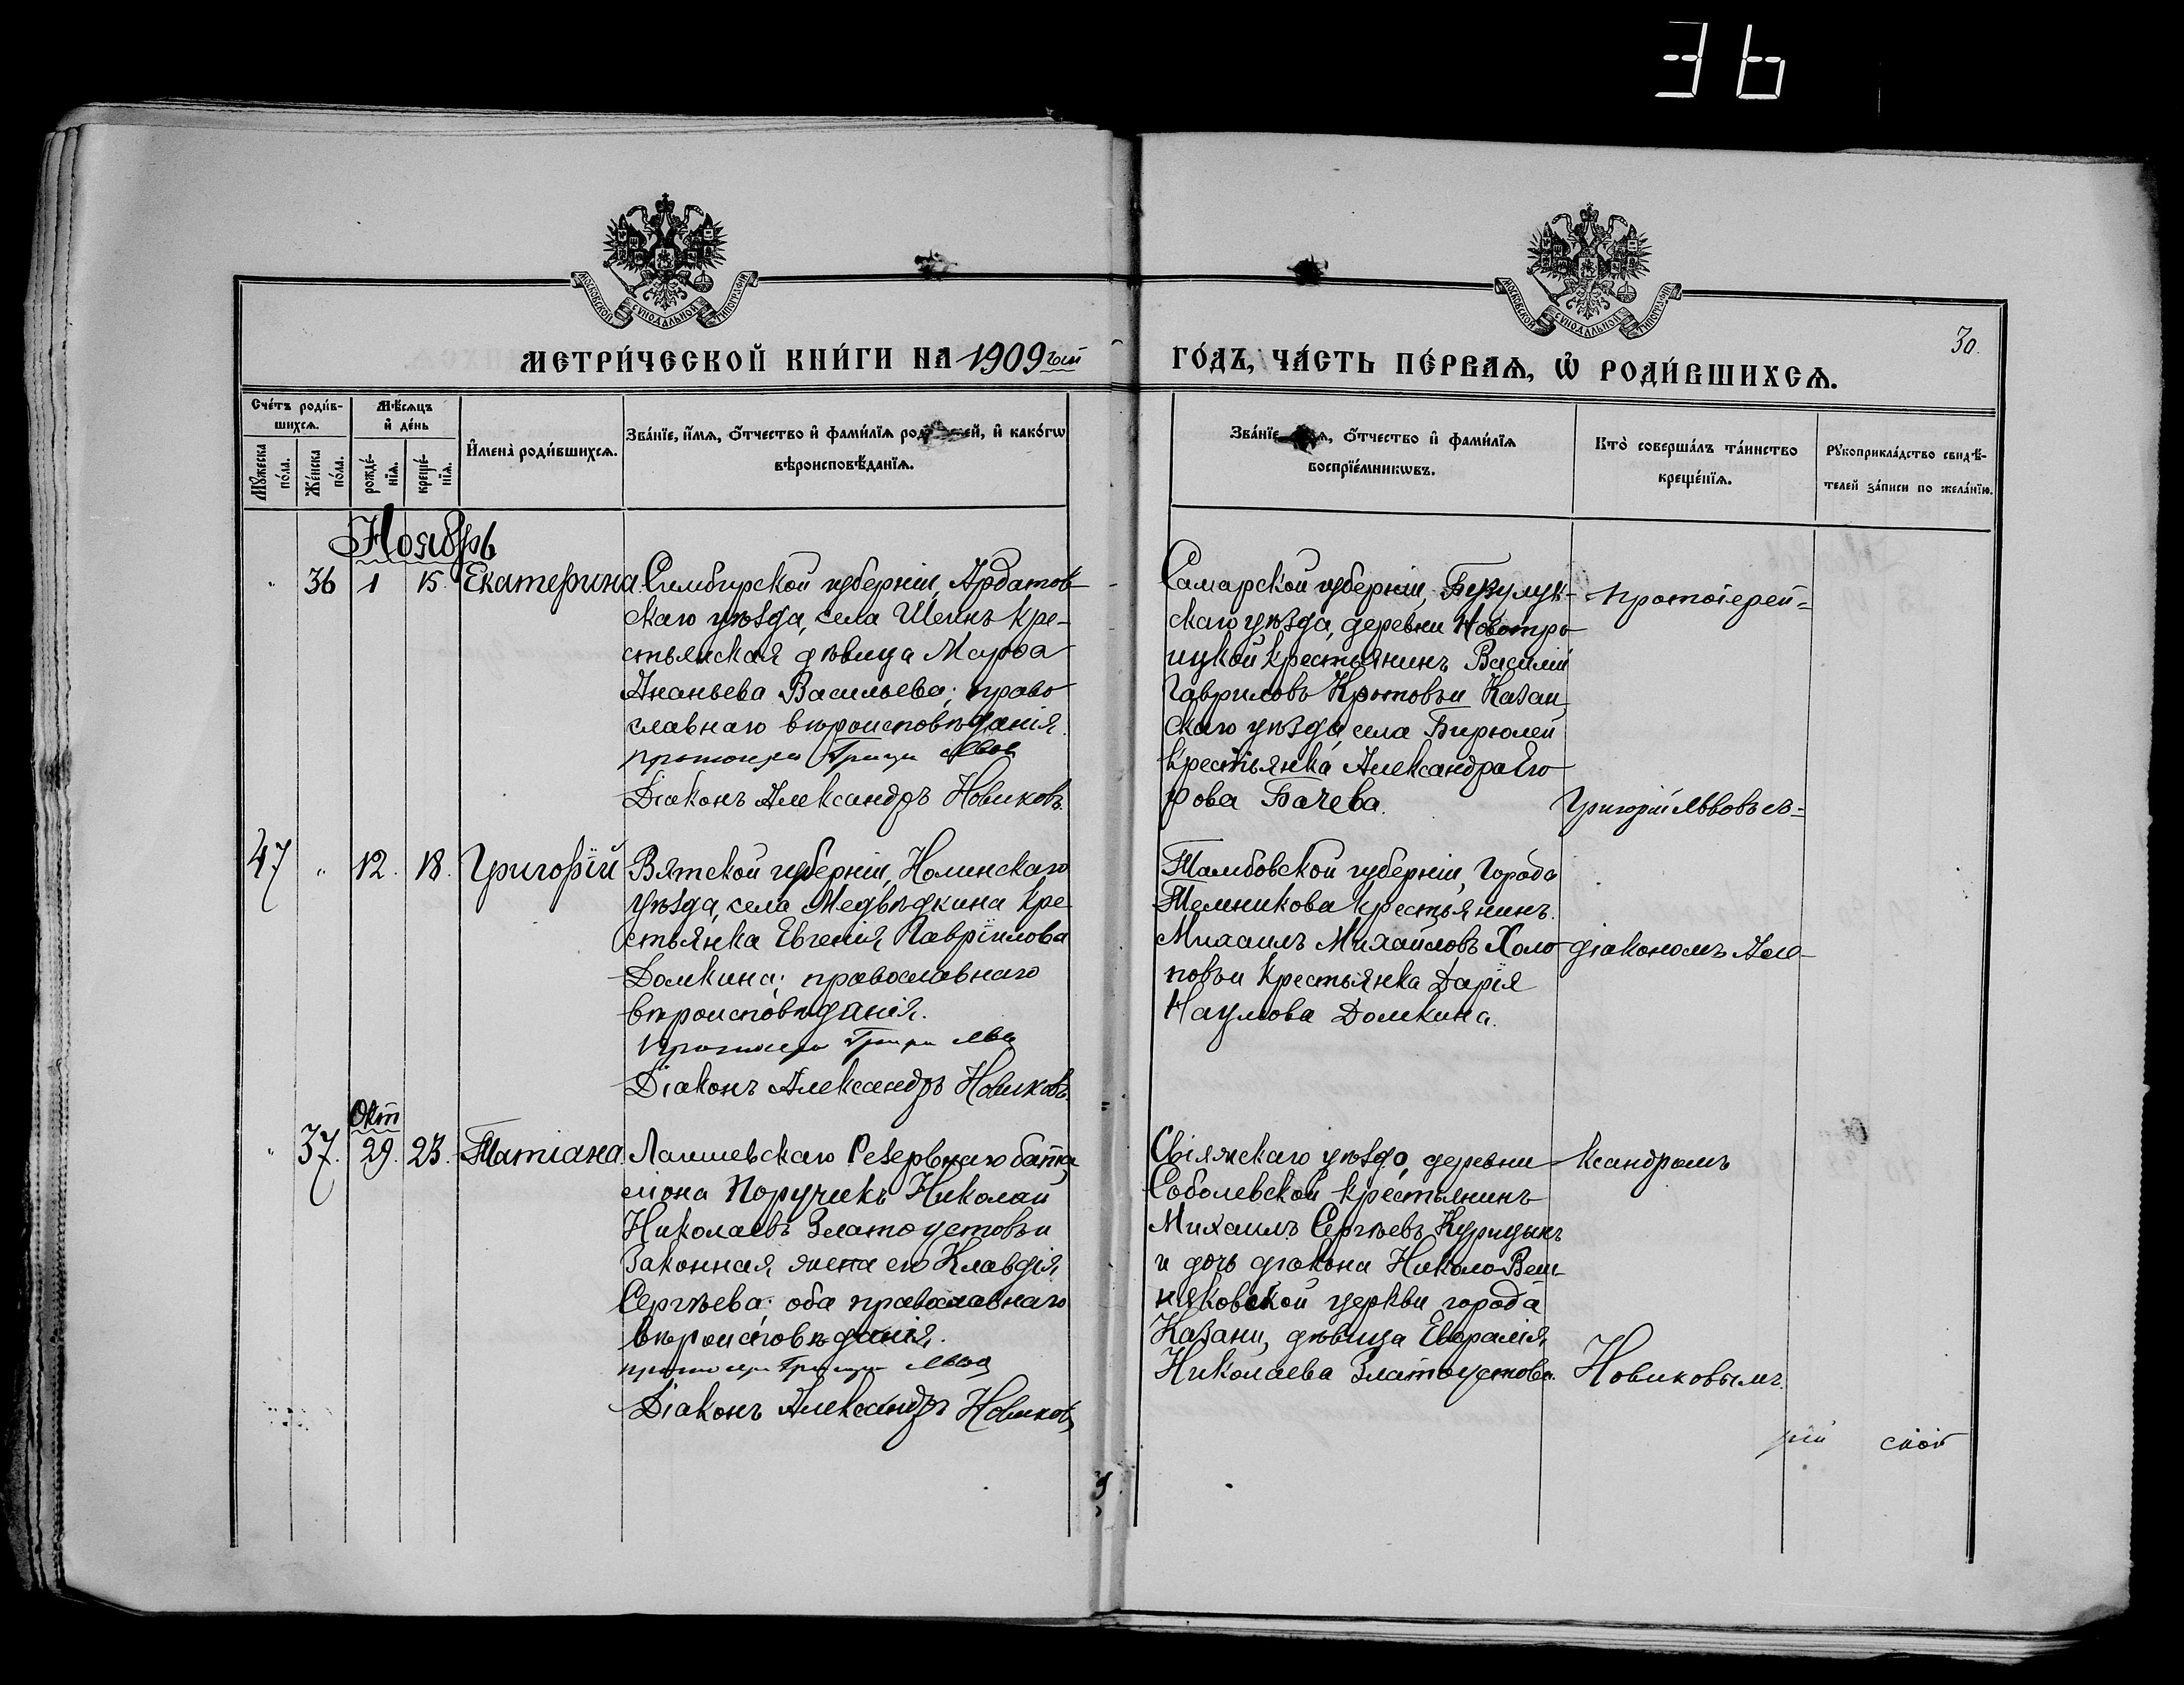 36
МОСКОВСКОЙ СѴНОДАЛЬНОЙ ТИПОГРАФІИ
МОСКОВСКОЙ СѴНОДАЛЬНОЙ ТИПОГРАФІИ
30.
МЕТРИ́ЧЕСКОЙ КНИ́ГИ НА 1909 ый
ГО́ДЪ, ЧА́СТЬ ПЕ́РВАѦ, Ѡ҆ РОДИ́ВШИХСѦ.
Сче́тъ роди́в-
шихсѧ.
Мꙋ́жеска по́ла.
Же́нска по́ла.
Мѣ́сѧцъ
и҆ де́нь
рожде́-
нїѧ.
креще́-
нїѧ.
И҆мена̀ роди́вшихсѧ.
Зва́нїе, и҆́мѧ, ѻ҆́тчество и҆ фами́лїѧ й, и҆ како́гѡ
вѣроисповѣ́данїѧ.
Зва́нїе ѻ҆́тчество и҆ фами́лїѧ
воспрїе́мникѡвъ.
Кто̀ соверша́лъ та́инство
креще́нїѧ.
Рꙋкоприкла́дство свидѣ́-
телей за́писи по жела́нїю.
Ноябрь
" 36 1 15. Екатерина
Симбирской губерніи, Ардатов
скаго уѣзда, села Шеинъ кре-
стьянская дѣвица Марѳа
Ананьева Васильева; право
славнаго вѣроисповѣданія.
протоіерей Григорій Львов
Діаконъ Александръ Новиковъ.
Самарской губерніи, Бузулук-
скаго уѣзда, деревни Новотро
ицкой крестьянинъ Василій
Гавриловъ Кротовъ и Казан
скаго уѣзда, села Бирюлей
крестьянка Александра Его
рова Бачева.
протоіерей=
Григорій Львовъ съ=
47 " 12. 18. Григорій
Вятской губерніи, Нолинскаго
уѣзда, села Медвѣдкина кре
стьянка Евгенія Гавріилова
Домкина; православнаго
вѣроисповѣданія.
протоіерей Григорій Львов
Діаконъ Александръ Новиковъ.
Тамбовской губерніи, города
Темникова крестьянинъ
Михаилъ Михайловъ Холо
повъ и крестьянка Дарія
Наумова Домкина.
діакономъ Але-
Окт
" 37. 29. 23. Татіана.
Лаишевскаго Резервнаго бата
ліона Поручикъ Николай
Николаевъ Златоустовъ и
законная жена его Клавдія
Сергѣева: оба православнаго
вѣроисповѣданія.
протоіерей Григорій Львов
Діаконъ Александръ Новиковъ
Свіяжскаго уѣзда, деревни
Соболевской крестьянинъ
Михаилъ Сергѣевъ Курицынъ
и дочь діакона Николо-Веш-
няковской церкви города
Казани, дѣвица Евпраксія
Николаева Златоустова.
ксандромъ
Новиковымъ.